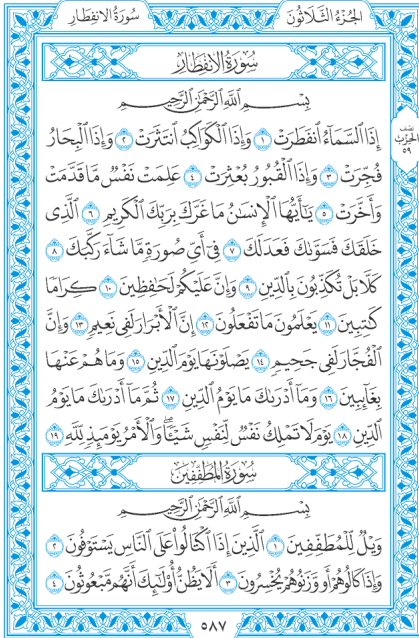 سُورَةُ الانفِطَارِ
الجُزْءُ الثَّلَاثُونَ
سُورَةُ الانفِطَارِ
بِسْمِ اللَّهِ الرَّحْمَٰنِ الرَّحِيمِ
إِذَا ٱلسَّمَآءُ ٱنفَطَرَتْ ١ وَإِذَا ٱلْكَوَاكِبُ ٱنتَثَرَتْ ٢ وَإِذَا ٱلْبِحَارُ
فُجِّرَتْ ٣ وَإِذَا ٱلْقُبُورُ بُعْثِرَتْ ٤ عَلِمَتْ نَفْسٌ مَّا قَدَّمَتْ
وَأَخَّرَتْ ٥ يَٰٓأَيُّهَا ٱلْإِنسَٰنُ مَا غَرَّكَ بِرَبِّكَ ٱلْكَرِيمِ ٦ ٱلَّذِى
خَلَقَكَ فَسَوَّىٰكَ فَعَدَلَكَ ٧ فِىٓ أَىِّ صُورَةٍ مَّا شَآءَ رَكَّبَكَ ٨
كَلَّا بَلْ تُكَذِّبُونَ بِٱلدِّينِ ٩ وَإِنَّ عَلَيْكُمْ لَحَٰفِظِينَ ١٠ كِرَامًا
كَٰتِبِينَ ١١ يَعْلَمُونَ مَا تَفْعَلُونَ ١٢ إِنَّ ٱلْأَبْرَارَ لَفِى نَعِيمٍ ١٣ وَإِنَّ
ٱلْفُجَّارَ لَفِى جَحِيمٍ ١٤ يَصْلَوْنَهَا يَوْمَ ٱلدِّينِ ١٥ وَمَا هُمْ عَنْهَا
بِغَآئِبِينَ ١٦ وَمَآ أَدْرَىٰكَ مَا يَوْمُ ٱلدِّينِ ١٧ ثُمَّ مَآ أَدْرَىٰكَ مَا يَوْمُ
ٱلدِّينِ ١٨ يَوْمَ لَا تَمْلِكُ نَفْسٌ لِّنَفْسٍ شَيْـًٔا ۖ وَٱلْأَمْرُ يَوْمَئِذٍ لِّلَّهِ ١٩
سُورَةُ المُطَفِّفِينَ
بِسْمِ اللَّهِ الرَّحْمَٰنِ الرَّحِيمِ
وَيْلٌ لِّلْمُطَفِّفِينَ ١ ٱلَّذِينَ إِذَا ٱكْتَالُوا۟ عَلَى ٱلنَّاسِ يَسْتَوْفُونَ ٢
وَإِذَا كَالُوهُمْ أَو وَّزَنُوهُمْ يُخْسِرُونَ ٣ أَلَا يَظُنُّ أُو۟لَٰٓئِكَ أَنَّهُم مَّبْعُوثُونَ ٤
نصف
الحزب
٥٩
٥٨٧